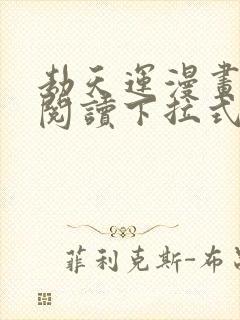 劫天運漫畫
閱讀下拉式
菲利克斯-布